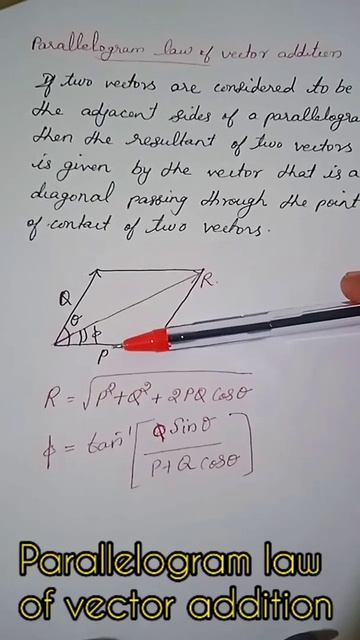 Parallelogram law of vector addition
If two vectors are considered to be
the adjacent sides of a parallelogra
then the resultant of two vectors
is given by the vector that is a
diagonal passing through the point
of contact of two vectors.
R
Q
θ
ϕ
P
R = √P²+Q²+2PQ Cosθ
ϕ = tan⁻¹ [Q Sinθ / P+Q Cosθ]
Parallelogram law
of vector addition